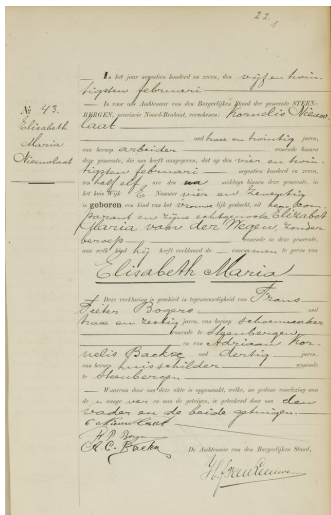 22.
In het jaar negentien honderd en zeven, den vijf en twin-
tigsten februari
Nº 43. is voor ons Ambtenaar van den Burgerlijken Stand der gemeente STEEN-
Elisabeth BERGEN, provincie Noord-Brabant, verschenen: Kornelis Nieuw
Maria laat
Nieuwlaat oud twee en twintig jaren,
van beroep arbeider wonende binnen
deze gemeente, die ons heeft aangegeven, dat op den vier en twin-
tigsten februari
ten half elf ure des na middags binnen deze gemeente, in
het huis Wijk E Nummer vier en zeventig
is geboren een kind van het vrouwelijk geslacht, uit hem com-
parant en zijne echtgenoote Elizabet
Maria van der Wegen, zonder
beroep wonende in deze gemeente,
aan welk kind hij heeft verklaard de voornamen te geven van
Elisabeth Maria
Deze verklaring is geschied in tegenwoordigheid van Frans
Pieter Bogers oud
twee en zestig jaren, van beroep schoenmaker
wonende te Steenbergen
en van Adriaan Kor-
nelis Backx oud dertig jaren,
van beroep huisschilder wonende
te Steenbergen
Waarvan door ons deze akte is opgemaakt, welke, na gedane voorlezing aan
den vader en de beide getuigen.
C Nieuwlaat
De Ambtenaar van den Burgerlijken Stand,